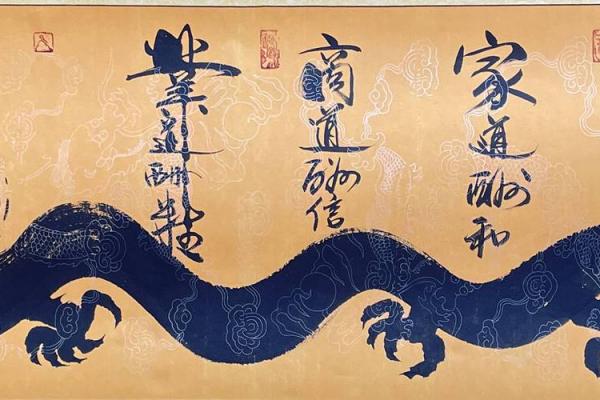 家道酬和
商道酬信
業道酬精